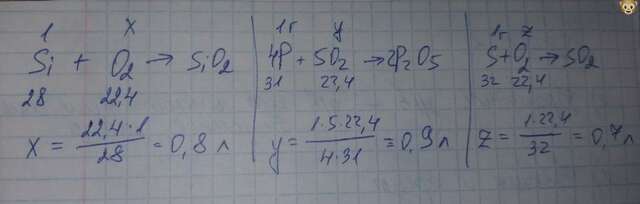 1 x
Si + O₂ → SiO₂
28 22,4
x = 22,4·1 / 28 = 0,8 л
1г y
4P + 5O₂ → 2P₂O₅
31 22,4
y = 1·5·22,4 / 4·31 = 0,9 л
1г z
S + O₂ → SO₂
32 22,4
z = 1·22,4 / 32 = 0,7 л